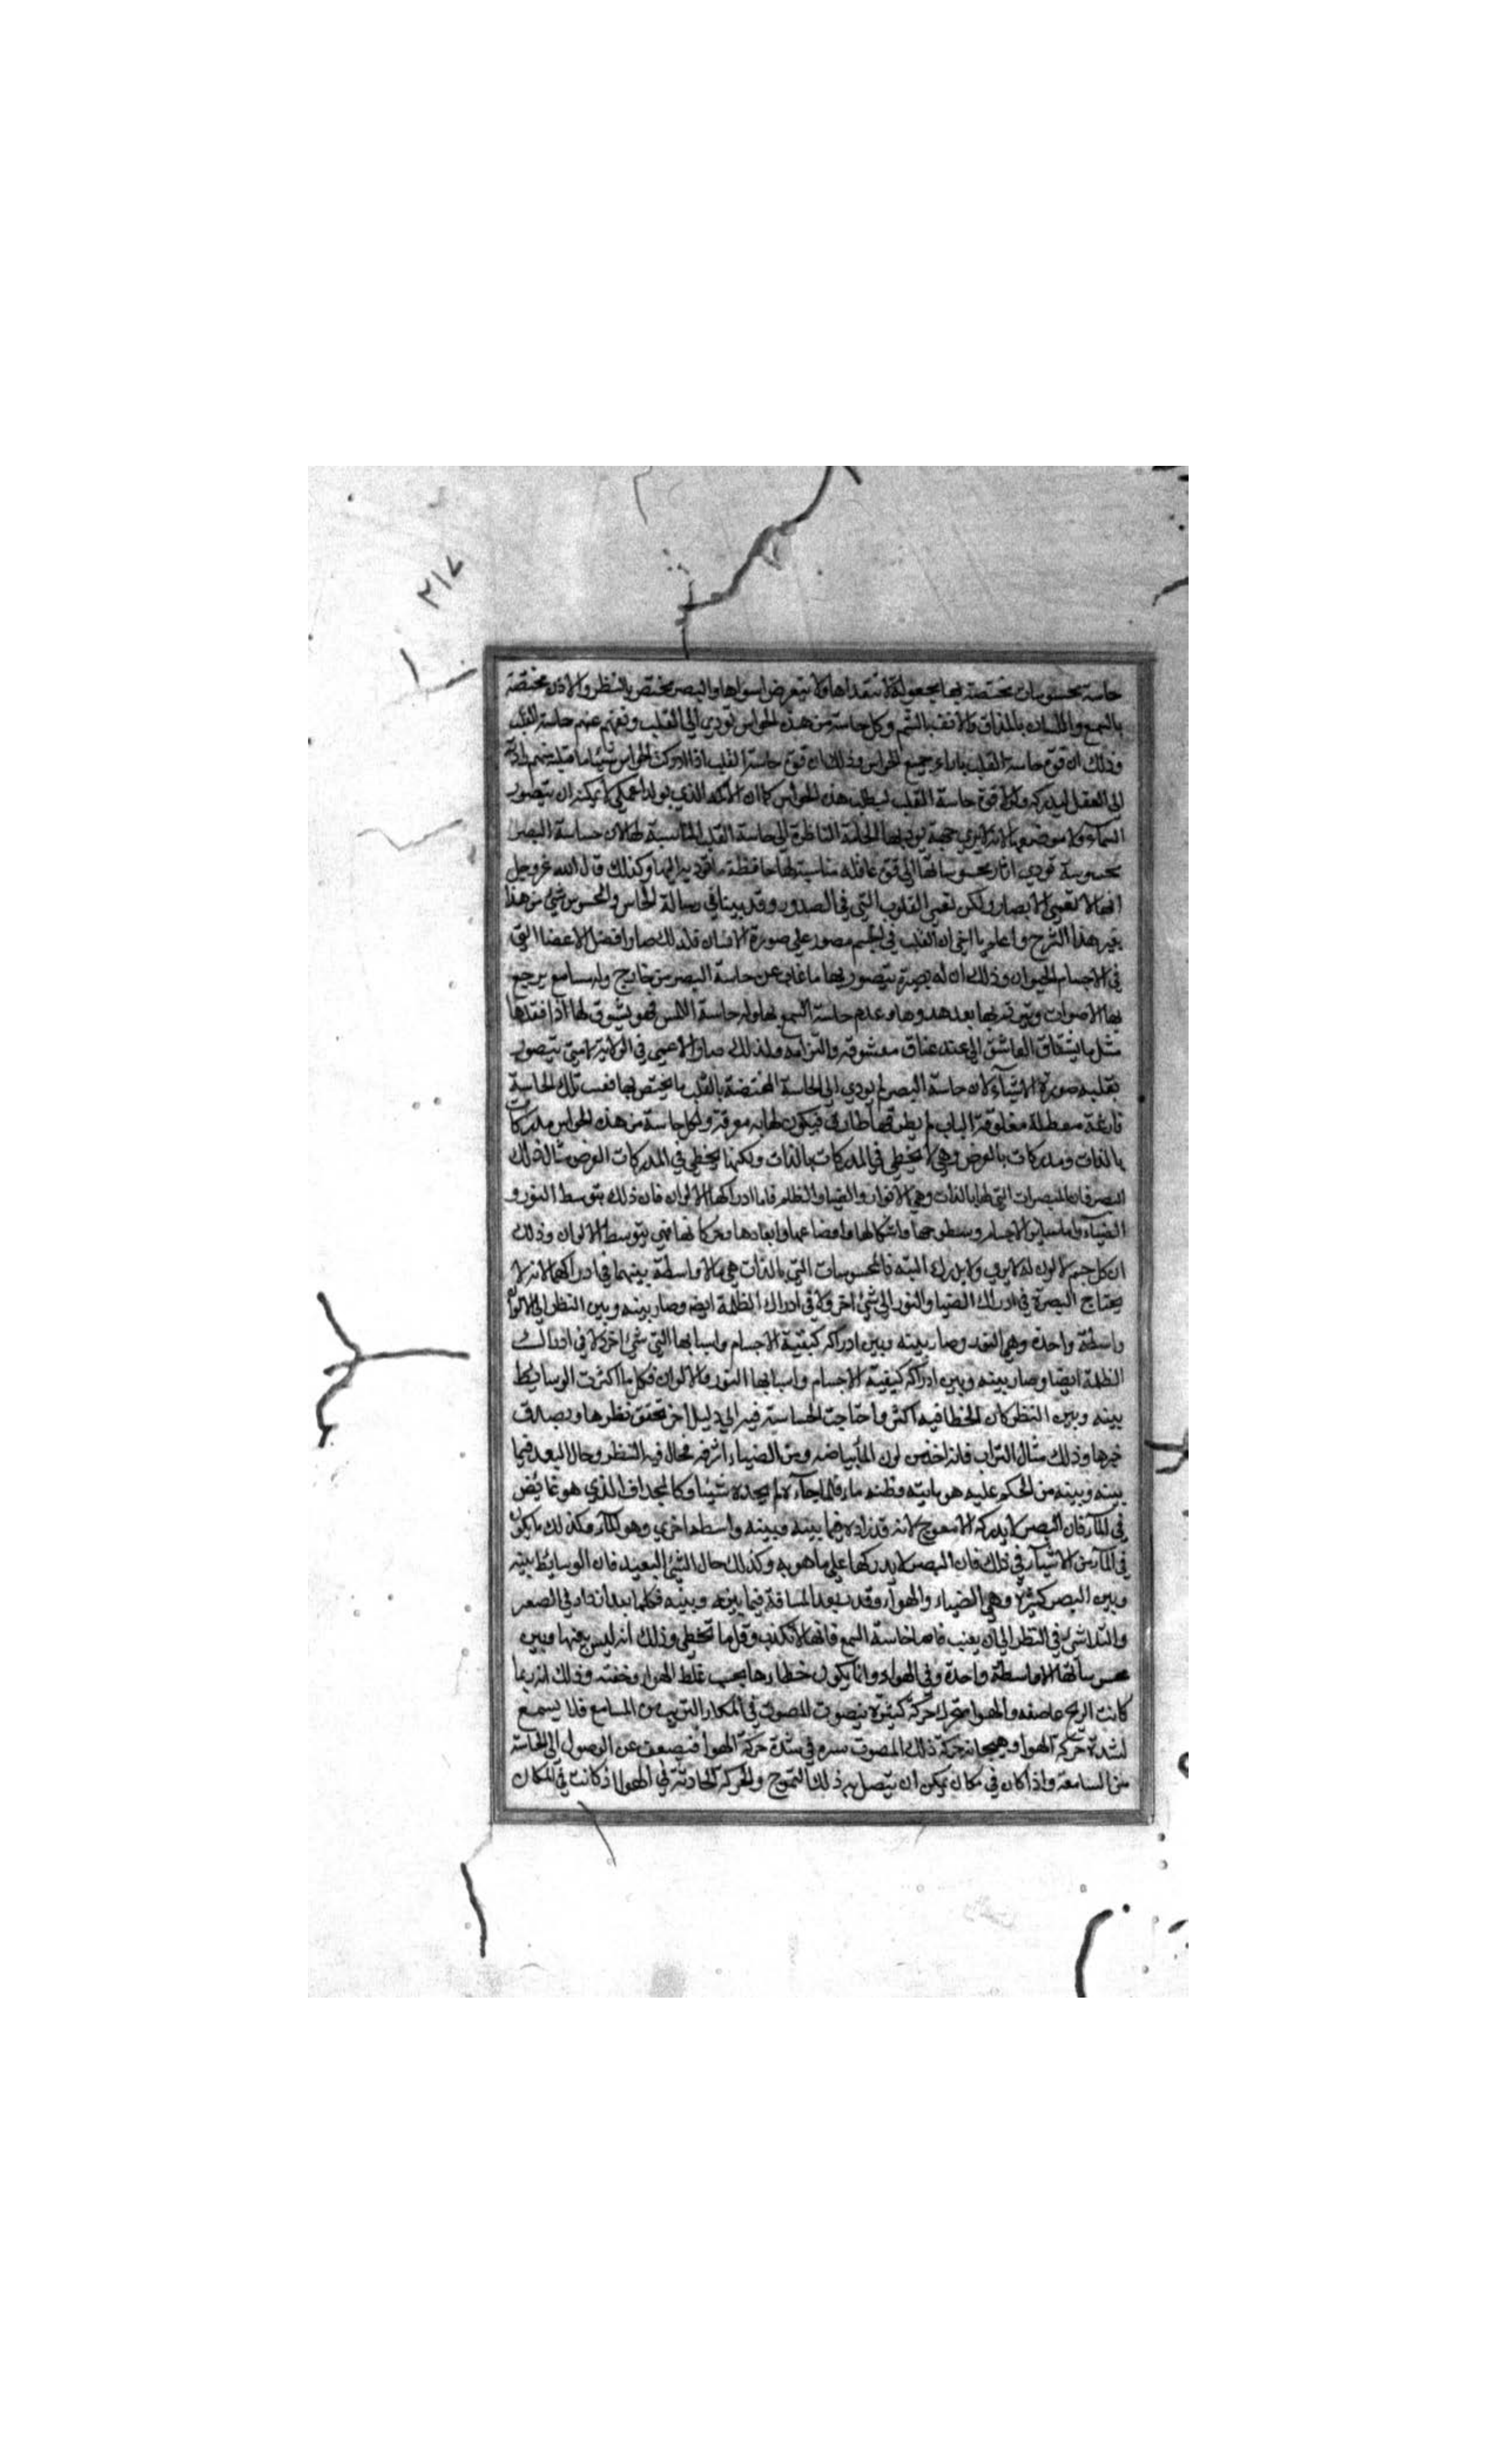 ٣١٧
حاسة بمحسوسات مختصة بها مجعولة لا تتعداها ولا يتعرض لسواها والبصر مختص بالنظر والاذن مختصة
بالسمع واللسان بالمذاق والانف بالشم وكل حاسة من هذه الحواس تودي الى القلب وتفهم عنهم حاسة القلب
وذلك ان قوة حاسة القلب بازاء جميع الحواس وذلك ان قوة حاسة القلب اذا ادركت الحواس شيئا ما قبله منهم واداه
الى العقل ليدركه ولولا قوة حاسة القلب لبطلت هذه الحواس كما ان الاكمه الذي يولد اعمى لا يمكنه ان يتصور
السماء ولا موضعها لانه لا يرى جهة يوديها الحاسة الناظرة الى حاسة القلب المناسبة لها لان حساسة البصر
محسوسة تودي اثار محسوساتها الى قوة عاقلة مناسبة لها حافظة ما توديه اليها وكذلك قال الله عز وجل
انها لا تعمى الابصار ولكن تعمى القلوب التي في الصدور وقد بينا في رسالة الحاس والمحسوس شيئ من هذا
بغير هذا الشرح واعلم يا اخي ان القلب في الجسم مصور على صورة الانسان فلذلك صار افضل الاعضا التي
في الاجسام الحيوان وذلك ان له بصرة يتصور بها ما غاب عن حاسة البصر من خارج وله مسامع يرجع
بها الاصوات ويترنم بها بعد هدوها وعدم حاسة السمع بها وله حاسة اللمس فهو يشوق لها اذا فقدها
مثل ما يشتاق العاشق الى عند عناق معشوقه والتزامه ولذلك صار الاعمى في الولاية لا متى يتصور
بقلبه صورة الاشياء لان حاسة البصر لم يودي الى الحاسة المختصة بالقلب ما يختص بها فبقيت تلك الحاسة
فارغة معطلة مغلوقة الباب لم يطرقها طارق فيكون لها به معرفة ولكل حاسة من هذه الحواس مدركات
بالذات ومدركات بالعرض وهي لا يخطي في المدركات بالذات ولكنها يخطي في المدركات العرض مثال ذلك
البصر فان المبصرات التي لها بالذات وهي الانوار والضيا والظلم فاما ادراكها الالوان فان ذلك بتوسط النور و
الضياء واما ساير الاجسام وسطوحها واشكالها واوضاعها وابعادها وحركاتها فهي بتوسط الالوان وذلك
ان كل جسم لا لون له لا يرى ولا يدرك البتة فالمحسوسات التي بالذات هي ما لا واسطة بينهما في ادراكهما لانه لا
يحتاج البصرة في ادراك الضيا والنور الى شيئ اخر ولا في ادراك الظلمة ايضه وصار بينه وبين النظر الى الالوان
واسطة واحدة وهي النور وصار بينه وبين ادراكه كيفية الاجسام واسبابها التي شيئ اخر لا في ادراك
الظلمة ايضا وصار بينه وبين ادراكه كيفية الاجسام واسبابها النور والالوان فكل ما اكثرت الوسايط
بينه وبين النظر كان الخطا فيه اكثر واحتاجت الحساسية فيه الى دليل اخر تحقق نظرها ويصدق
خبرها وذلك مثال التراب فانه اخذ من لون الما بياضه ومن الضياء اشراقه فحال فيه النظر وحال البعد فيما
بينه وبينه من الحكم عليه هو بايته فظنه ماء فلما جاءه لم يجده شيئا وكالمجداف الذي هو غايض
في الماء فان البصر لا يدركه الا معوج لانه قد زاده فيما بينه وبينه واسطه اخرى وهو الماء وكذلك ما يكون
في الماء من الاشياء في ذلك فان البصر لا يدركها على ما هو به وكذلك حال الشيئ البعيد فان الوسايط بينه
وبين البصر كثيرة وهي الضياء والهواء وقد بعد المسافة فيما بينه وبينه فكلما بعد ازداد في الصغر
والتلاشي في النظر الى ان يغيب فاما حاسة السمع فانها لا تكذب وقل ما تخطي وذلك انه ليس بينها وبين
محسوساتها الا واسطة واحدة وفي الهواء وانما يكون خطاؤها بحسب غلظ الهواء وخفته وذلك انه ربما
كانت الريح عاصفه والهوا متحرك حركة كثيرة فيصوت المصوت في المكان القريب من المسامع فلا يسمع
لشدة حركة الهوا وهيجانه حركة ذلك المصوت يسيره في شدة حركة الهوا فيضعف عن الوصول الى الحاسة
من السامعة واذا كان في مكان يمكن ان يتصل به ذلك التموج والحركة الحادثة في الهوا اذ كانت في المكان